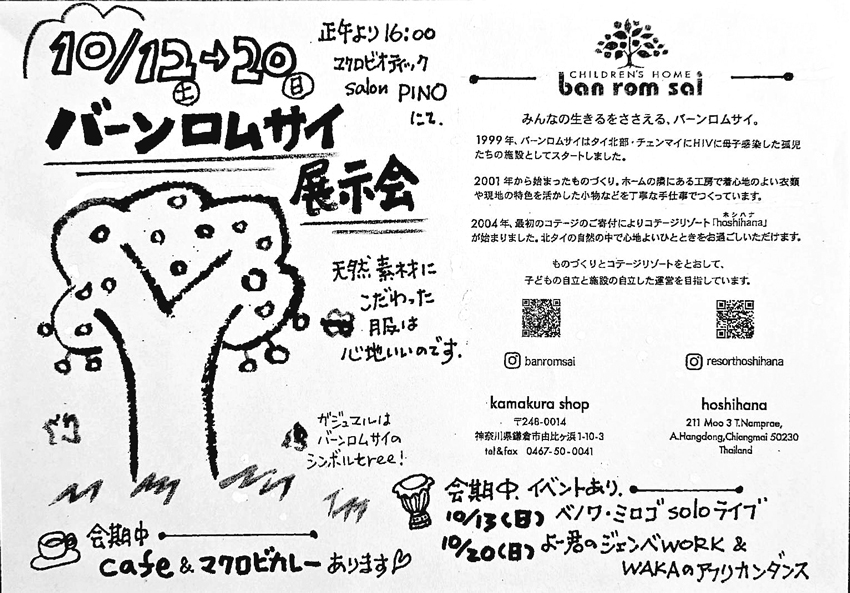 10/12→20
土
日
正午より16:00
マクロビオティック
salon PINO
にて.
バーンロムサイ
展示会
天然素材に
こだわった
服は
心地いいのです.
ガジュマルは
バーンロムサイの
シンボルtree!
会期中
cafe & マクロビカレーあります♡
CHILDREN'S HOME
ban rom sai
みんなの生きるをささえる、バーンロムサイ。
1999年、バーンロムサイはタイ北部・チェンマイにHIVに母子感染した孤児
たちの施設としてスタートしました。
2001年から始まったものづくり。ホームの隣にある工房で着心地のよい衣類
や現地の特色を活かした小物などを丁寧な手仕事でつくっています。
ホシハナ
2004年、最初のコテージのご寄付によりコテージリゾート「hoshihana」
が始まりました。北タイの自然の中で心地よいひとときをお過ごしいただけます。
ものづくりとコテージリゾートをとおして、
子どもの自立と施設の自立した運営を目指しています。
banromsai
resorthoshihana
kamakura shop
〒248-0014
神奈川県鎌倉市由比ヶ浜1-10-3
tel&fax 0467-50-0041
hoshihana
211 Moo 3 T.Namprae,
A.Hangdong,Chiangmai 50230
Thailand
会期中.イベントあり.
10/13(日) ベノワ・ミロゴsoloライブ
10/20(日) よー君のジェンベWORK &
WAKAのアフリカンダンス